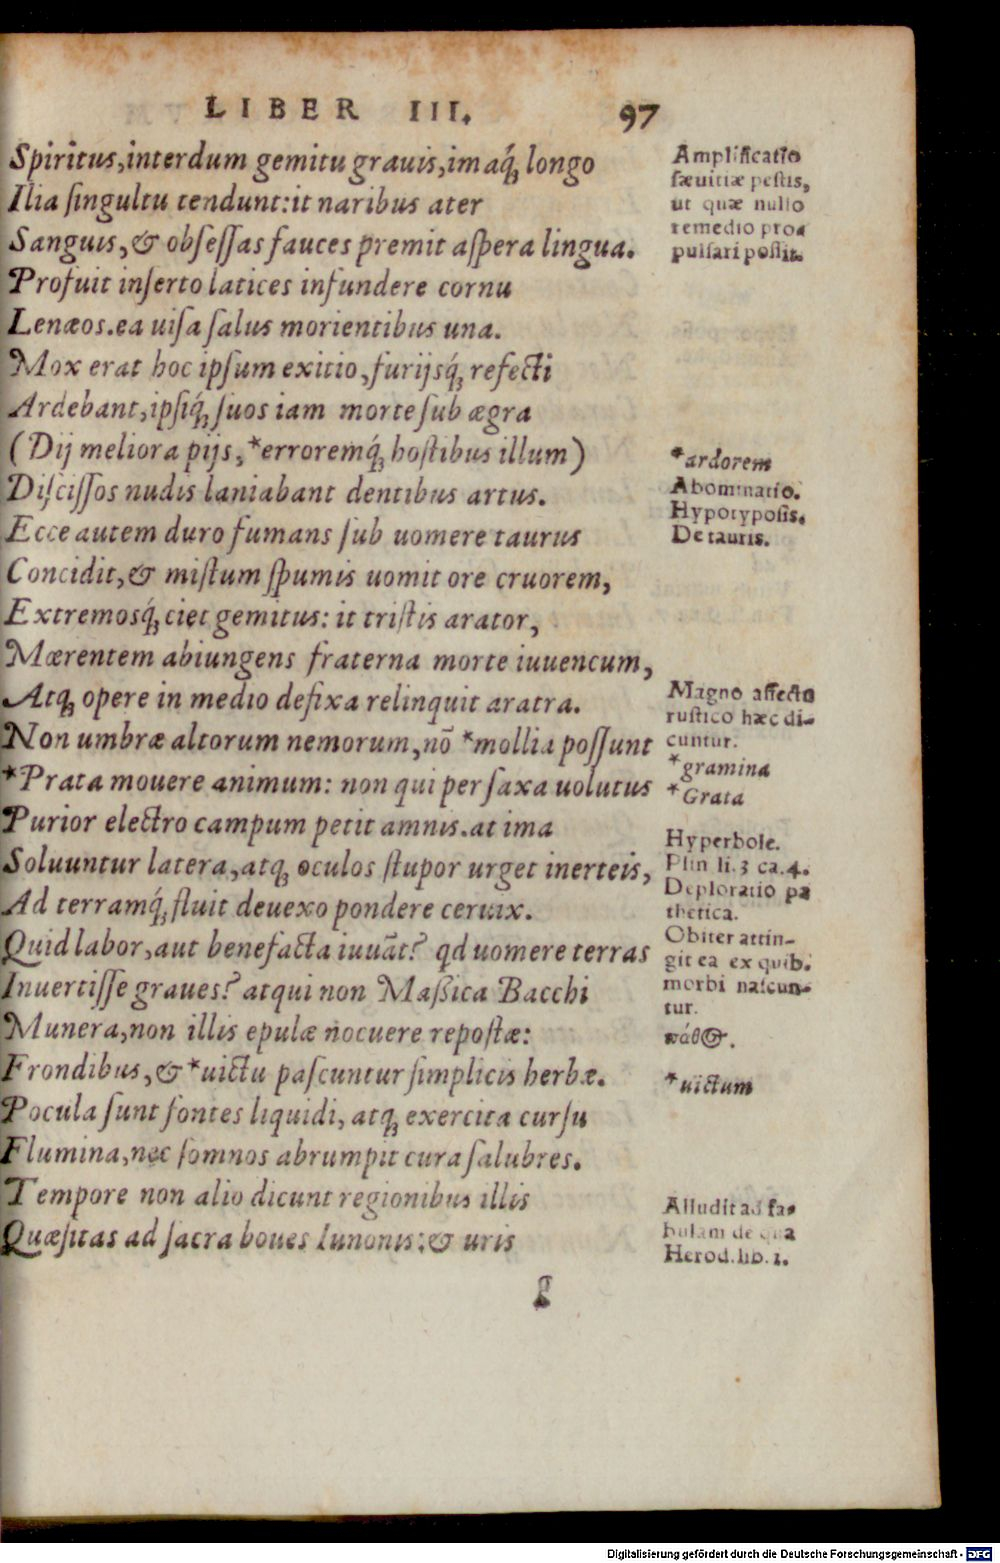 LIBER III. 97
Spiritus,interdum gemitu grauis,imaq́; longo
Ilia ſingultu tendunt:it naribus ater
Sanguis,& obſeſſas fauces premit aſpera lingua.
Profuit inſerto latices infundere cornu
Lenæos.ea uiſa ſalus morientibus una.
Mox erat hoc ipſum exitio,furijsq́; refecti
Ardebant,ipſiq́; ſuos iam morte ſub ægra
(Dij meliora pijs,*erroremq́; hoſtibus illum)
Diſciſſos nudis laniabant dentibus artus.
Ecce autem duro fumans ſub uomere taurus
Concidit,& miſtum ſpumis uomit ore cruorem,
Extremosq́; ciet gemitus: it triſtis arator,
Mærentem abiungens fraterna morte iuuencum,
Atq; opere in medio defixa relinquit aratra.
Non umbræ altorum nemorum,nō *mollia poſſunt
*Prata mouere animum: non qui per ſaxa uolutus
Purior electro campum petit amnis.at ima
Soluuntur latera,atq; oculos ſtupor urget inerteis,
Ad terramq́; fluit deuexo pondere ceruix.
Quid labor,aut benefacta iuuāt? qd uomere terras
Inuertiſſe graues? atqui non Maßica Bacchi
Munera,non illis epulæ nocuere repoſtæ:
Frondibus,& *uictu paſcuntur ſimplicis herbæ.
Pocula ſunt fontes liquidi, atq; exercita curſu
Flumina,nec ſomnos abrumpit cura ſalubres.
Tempore non alio dicunt regionibus illis
Quæſitas ad ſacra boues Iunonis:& uris
Amplificatio
ſæuitiæ peſtis,
ut quæ nullo
remedio pro-
pulſari poſſit.
*ardorem
Abominatio.
Hypotypoſis.
De tauris.
Magno affectu
ruſtico hæc di-
cuntur.
*gramina
*Grata
Hyperbole.
Plin li.3 ca.4.
Deploratio pa
thetica.
Obiter attin-
git ea ex quib.
morbi naſcun-
tur.
*uictum
Alludit ad fa-
bulam de qua
Herod.lib.1.
Digitalisierung gefördert durch die Deutsche Forschungsgemeinschaft - DFG